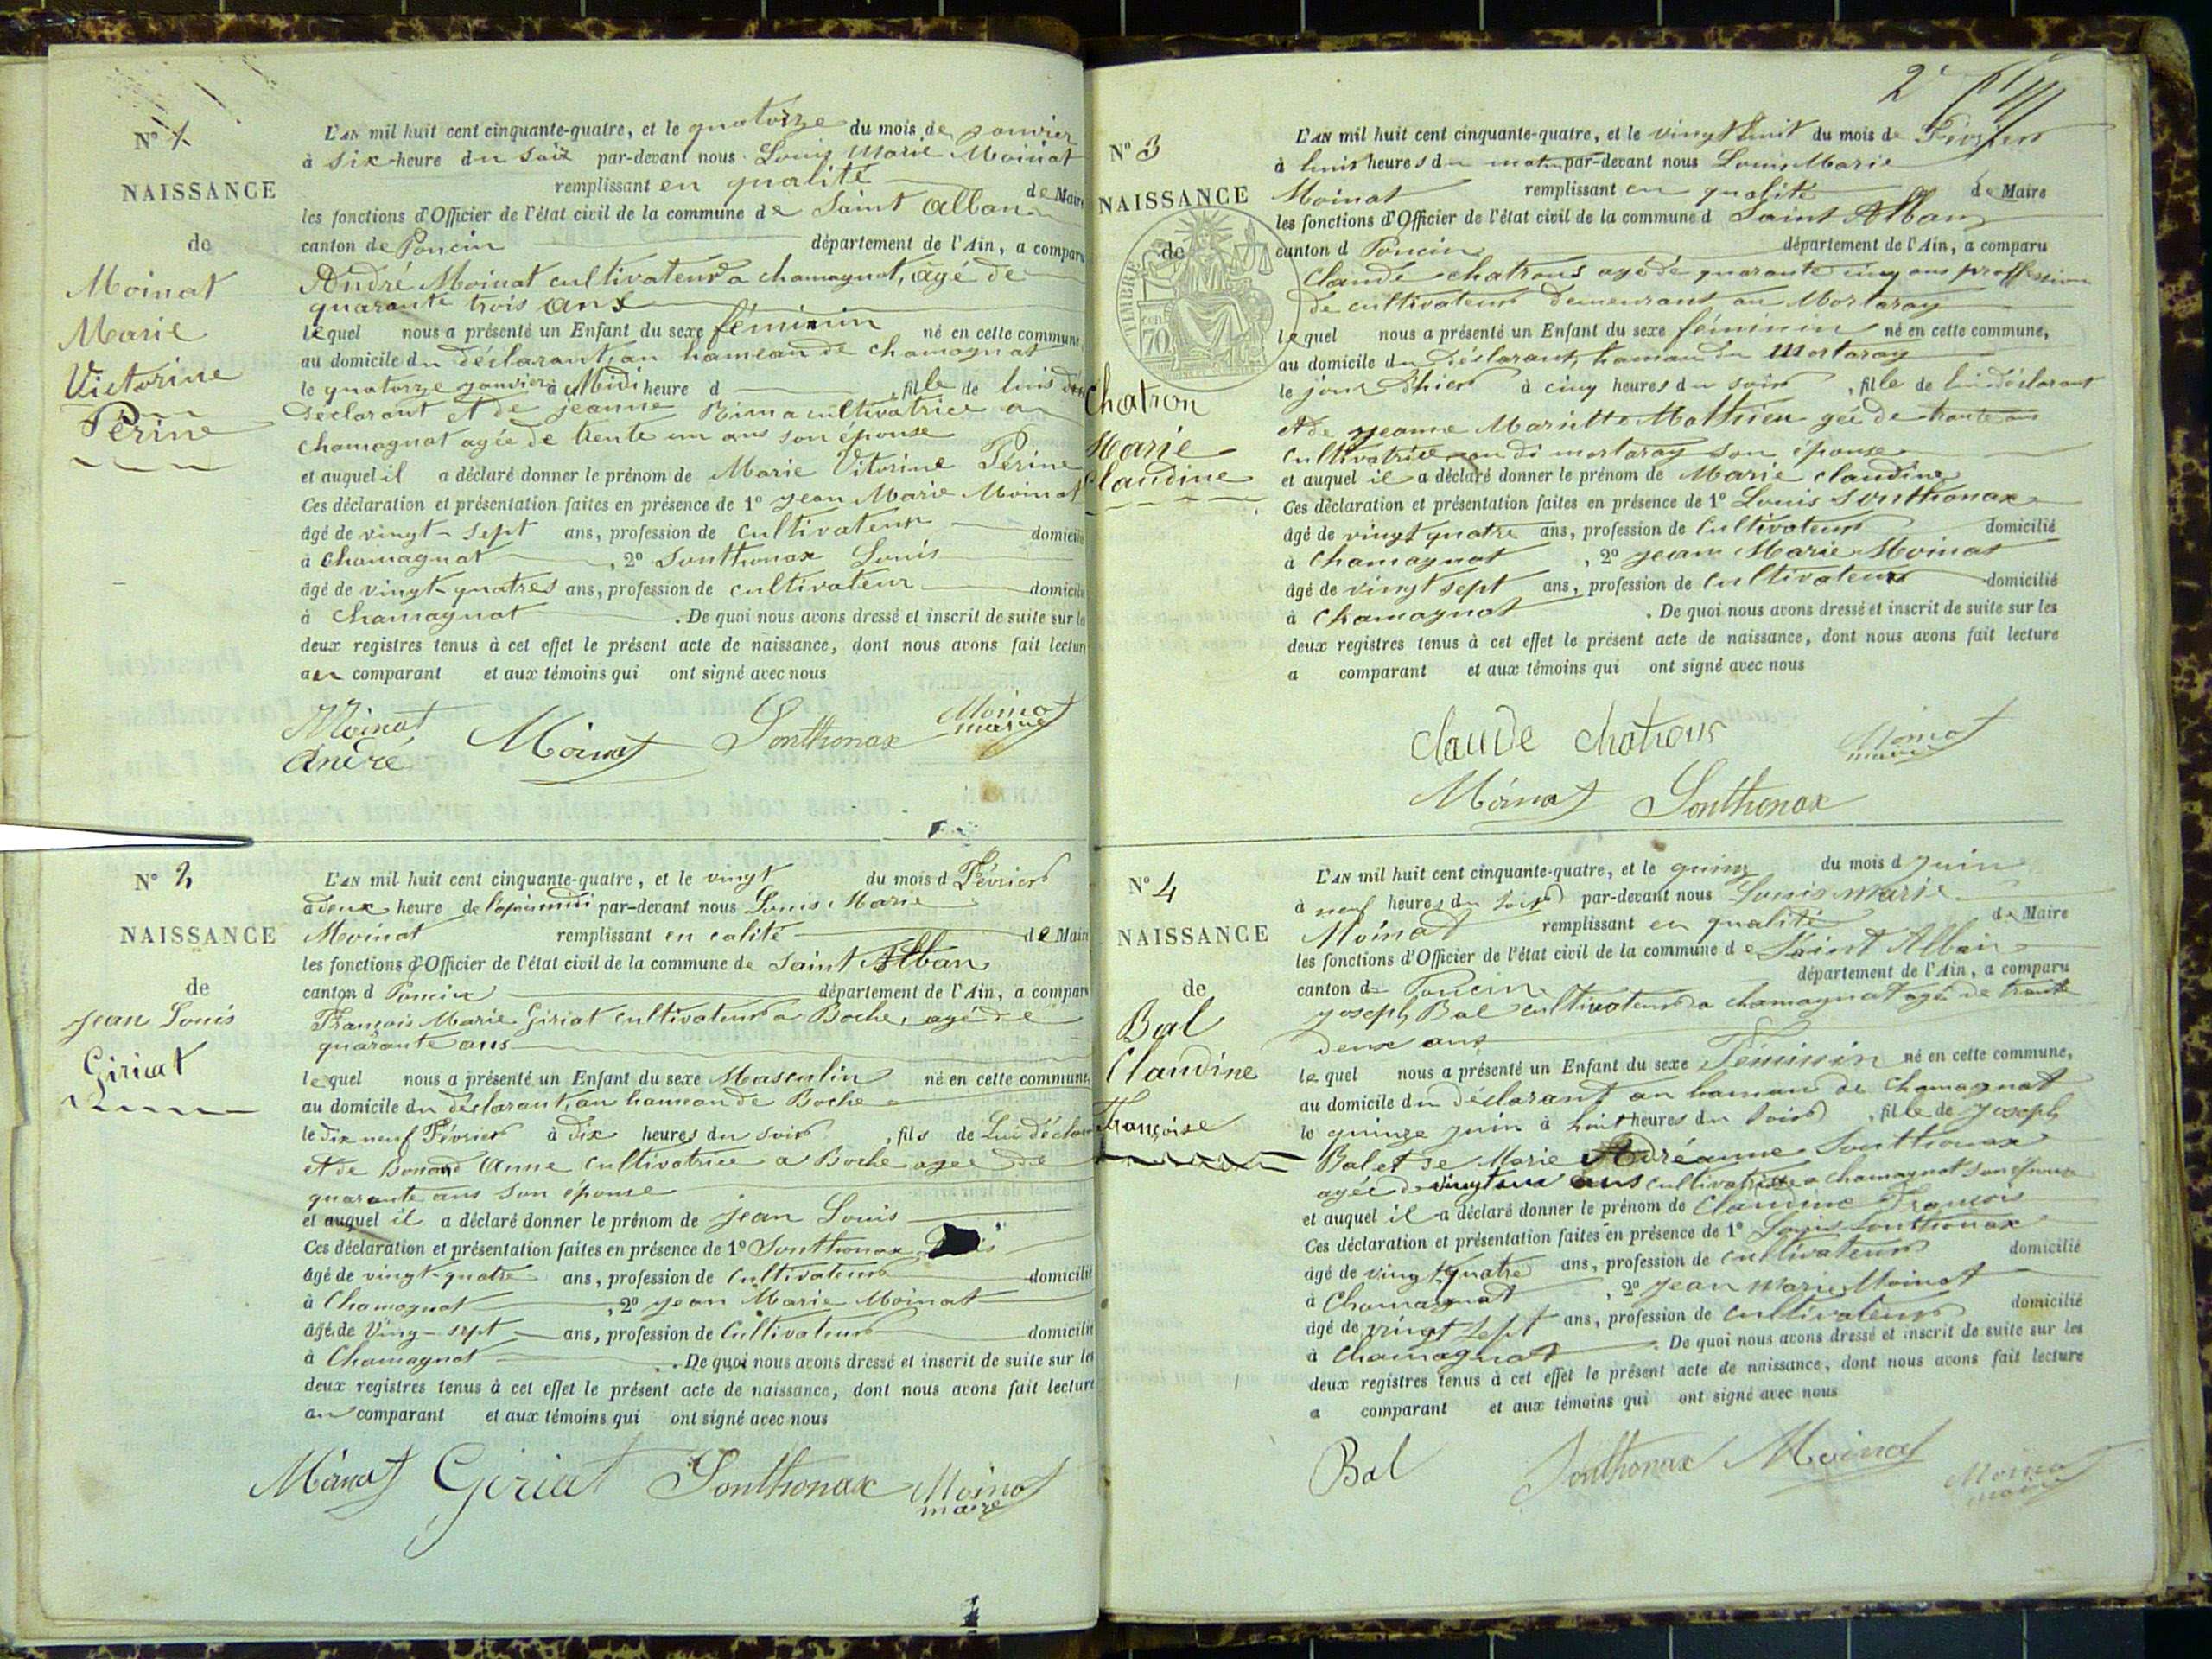 N° 1
NAISSANCE
de
Moinat
Marie
Victorine
Périne
L'AN mil huit cent cinquante-quatre, et le quatorze du mois de janvier
à six heure du soir par-devant nous Louis Marie Moinat
remplissant en qualité de Maire
les fonctions d'Officier de l'état civil de la commune de Saint Alban
canton de Poncin département de l'Ain, a comparu
André Moinat cultivateur a chamagnat, âgé de
quarante trois ans
lequel nous a présenté un Enfant du sexe féminin né en cette commune,
au domicile du déclarant, au hameau de chamagnat
le quatorze janvier à Midi heure d , fille de luis
déclarant et de jeanne cultivatrice a
chamagnat agée de trente un ans son épouse
et auquel il a déclaré donner le prénom de Marie Vitorine Périne
Ces déclaration et présentation faites en présence de 1° jean Marie Moinat
âgé de vingt-sept ans, profession de cultivateur domicilié
à Chamagnat , 2° Sonthonax Louis
âgé de vingt-quatres ans, profession de cultivateur domicilié
à Chamagnat . De quoi nous avons dressé et inscrit de suite sur les
deux registres tenus à cet effet le présent acte de naissance, dont nous avons fait lecture
au comparant et aux témoins qui ont signé avec nous
Moinat
André Moinat Sonthonax Moinat
maire
N° 2
NAISSANCE
de
jean Louis
Giriat
L'AN mil huit cent cinquante-quatre, et le vingt du mois d Février
à deux heure de l'aprésmidi par-devant nous Louis Marie
Moinat remplissant en calité de Maire
les fonctions d'Officier de l'état civil de la commune de Saint Alban
canton d Poncin département de l'Ain, a comparu
François Marie Giriat cultivateur a Boche, agé de
quarante ans
lequel nous a présenté un Enfant du sexe Masculin né en cette commune,
au domicile du déclarant, au hameau de Boche
le dix neuf Février à dix heures du soir , fils de Lui déclarant
et de Bonand Anne cultivatrice a Boche agee de
quarante ans son épouse
et auquel il a déclaré donner le prénom de jean Louis
Ces déclaration et présentation faites en présence de 1° Sonthonax
âgé de vingt-quatre ans, profession de Cultivateur domicilié
à Chamagnat , 2° jean Marie Moinat
âgé de Ving-sept ans, profession de Cultivateur domicilié
à Chamagnat . De quoi nous avons dressé et inscrit de suite sur les
deux registres tenus à cet effet le présent acte de naissance, dont nous avons fait lecture
au comparant et aux témoins qui ont signé avec nous
Moinat Giriat Sonthonax Moinat
maire
2
N° 3
NAISSANCE
de
TIMBRE
70
Chatron
Marie
Claudine
L'AN mil huit cent cinquante-quatre, et le vingt huit du mois de Février
à huit heures du matin par-devant nous Louis Marie
Moinat remplissant en qualité de Maire
les fonctions d'Officier de l'état civil de la commune d Saint Alban
canton d Poncin département de l'Ain, a comparu
Claude chatrous agé de quarante cinq ans proffession
de cultivateur demeurant au Mortaray
lequel nous a présenté un Enfant du sexe féminin né en cette commune,
au domicile du déclarant, hamau du Mortaray
le jour d'hier à cinq heures du soir , fille de lui déclarant
et de jeanne Mariette Mathieu gée de trante ans
cultivatrice au di mortaray son épouse
et auquel il a déclaré donner le prénom de Marie claudine
Ces déclaration et présentation faites en présence de 1° Louis Sonthonax
âgé de vingt quatre ans, profession de Cultivateur domicilié
à Chamagnat , 2° jean Marie Moinat
âgé de vingt sept ans, profession de Cultivateur domicilié
à Chamagnat . De quoi nous avons dressé et inscrit de suite sur les
deux registres tenus à cet effet le présent acte de naissance, dont nous avons fait lecture
a comparant et aux témoins qui ont signé avec nous
Claude chatrous Moinat
maire
Moinat Sonthonax
N° 4
NAISSANCE
de
Bal
Claudine
Françoise
L'AN mil huit cent cinquante-quatre, et le quinz du mois d juin
à neuf heures du soir par-devant nous Louis marie
Moinat remplissant en qualité de Maire
les fonctions d'Officier de l'état civil de la commune de Saint Alban
canton d Poncin département de l'Ain, a comparu
joseph Bal cultivateur a chamagnat agé de trante
deux ans
lequel nous a présenté un Enfant du sexe Féminin né en cette commune,
au domicile du déclarant au hamau de Chamagnat
le quinze juin à huit heures du soir , fille de joseph
Bal et de Marie Sonthonax
agée de ans cultivatrice a chamagnat son épouse
et auquel il a déclaré donner le prénom de Claudine François
Ces déclaration et présentation faites en présence de 1° Louis Sonthonax
âgé de vingt quatre ans, profession de cultivateur domicilié
à Chamagnat , 2° jean marie Moinat
âgé de vingt sept ans, profession de cultivateur domicilié
à Chamagnat . De quoi nous avons dressé et inscrit de suite sur les
deux registres tenus à cet effet le présent acte de naissance, dont nous avons fait lecture
a comparant et aux témoins qui ont signé avec nous
Bal Sonthonax Moinat Moinat
maire